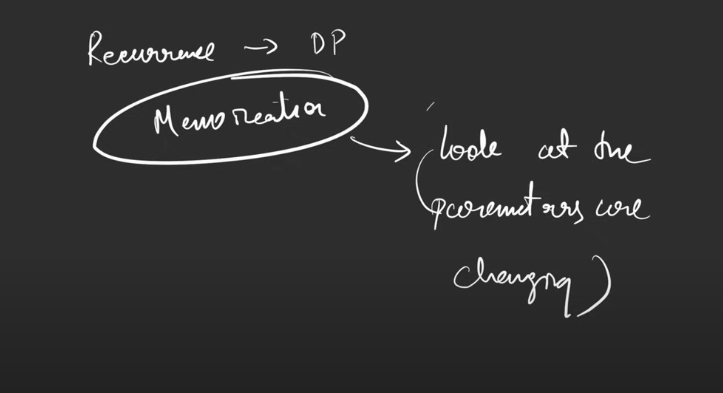 Recurrence → DP
Memoization
(look at the
parameters are
changing)